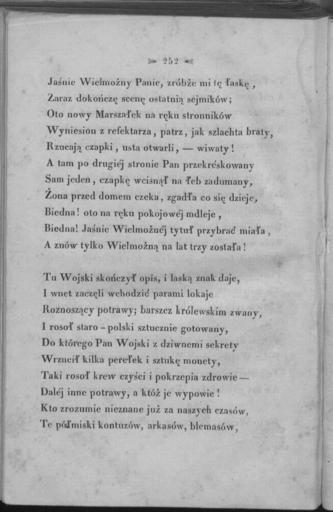 252
Jaśnie Wielmożny Panie, zróbże mi tę łaskę,
Zaraz dokończę scenę ostatnią sejmików;
Oto nowy Marszałek na ręku stronników
Wyniesion z refektarza, patrz, jak szlachta braty,
Rzucają czapki, usta otwarli, — wiwaty!
A tam po drugiéj stronie Pan przekréskowany
Sam jeden, czapkę wcisnął na łeb zadumany,
Żona przed domem czeka, zgadła co się dzieje,
Biedna! oto na ręku pokojowéj mdleje,
Biedna! Jaśnie Wielmożnéj tytuł przybrać miała,
A znów tylko Wielmożną na lat trzy została!
Tu Wojski skończył opis, i laską znak daje,
I wnet zaczęli wchodzić parami lokaje
Roznoszący potrawy; barszcz królewskim zwany,
I rosoł staro-polski sztucznie gotowany,
Do którego Pan Wojski z dziwnemi sekrety
Wrzucił kilka perełek i sztukę monety,
Taki rosoł krew czyści i pokrzepia zdrowie —
Daléj inne potrawy, a któż je wypowie!
Kto zrozumie nieznane już za naszych czasów,
Te półmiski kontuzów, arkasów, blemasów,